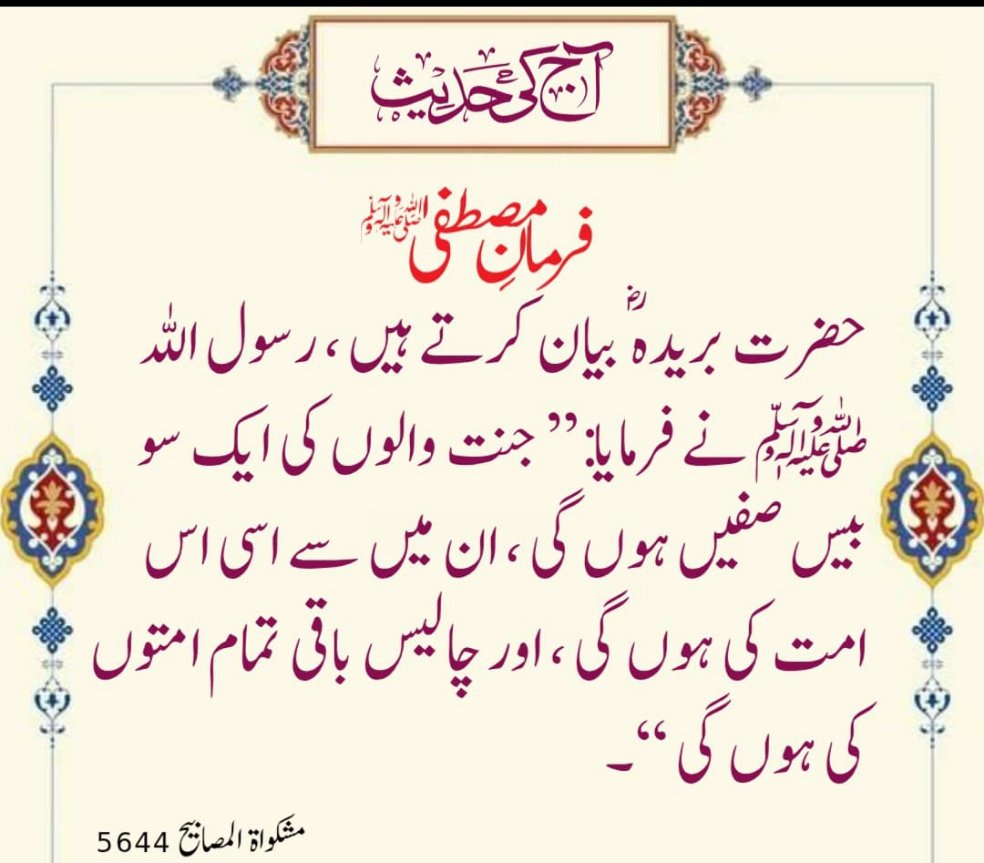 آج کی حدیث
فرمانِ مصطفی ﷺ
حضرت بریدہؓ بیان کرتے ہیں، رسول اللہ
ﷺ نے فرمایا: ”جنت والوں کی ایک سو
بیس صفیں ہوں گی، ان میں سے اسی اس
امت کی ہوں گی، اور چالیس باقی تمام امتوں
کی ہوں گی“۔
مشکواۃ المصابیح 5644